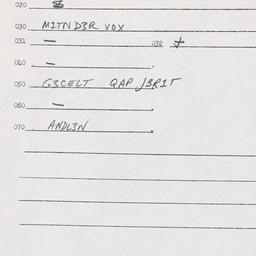 020
030 M1TND3R VOX
031 — 032
040 —
050 G3CELT QAP J3R1T
060 —
070 ANDL3N